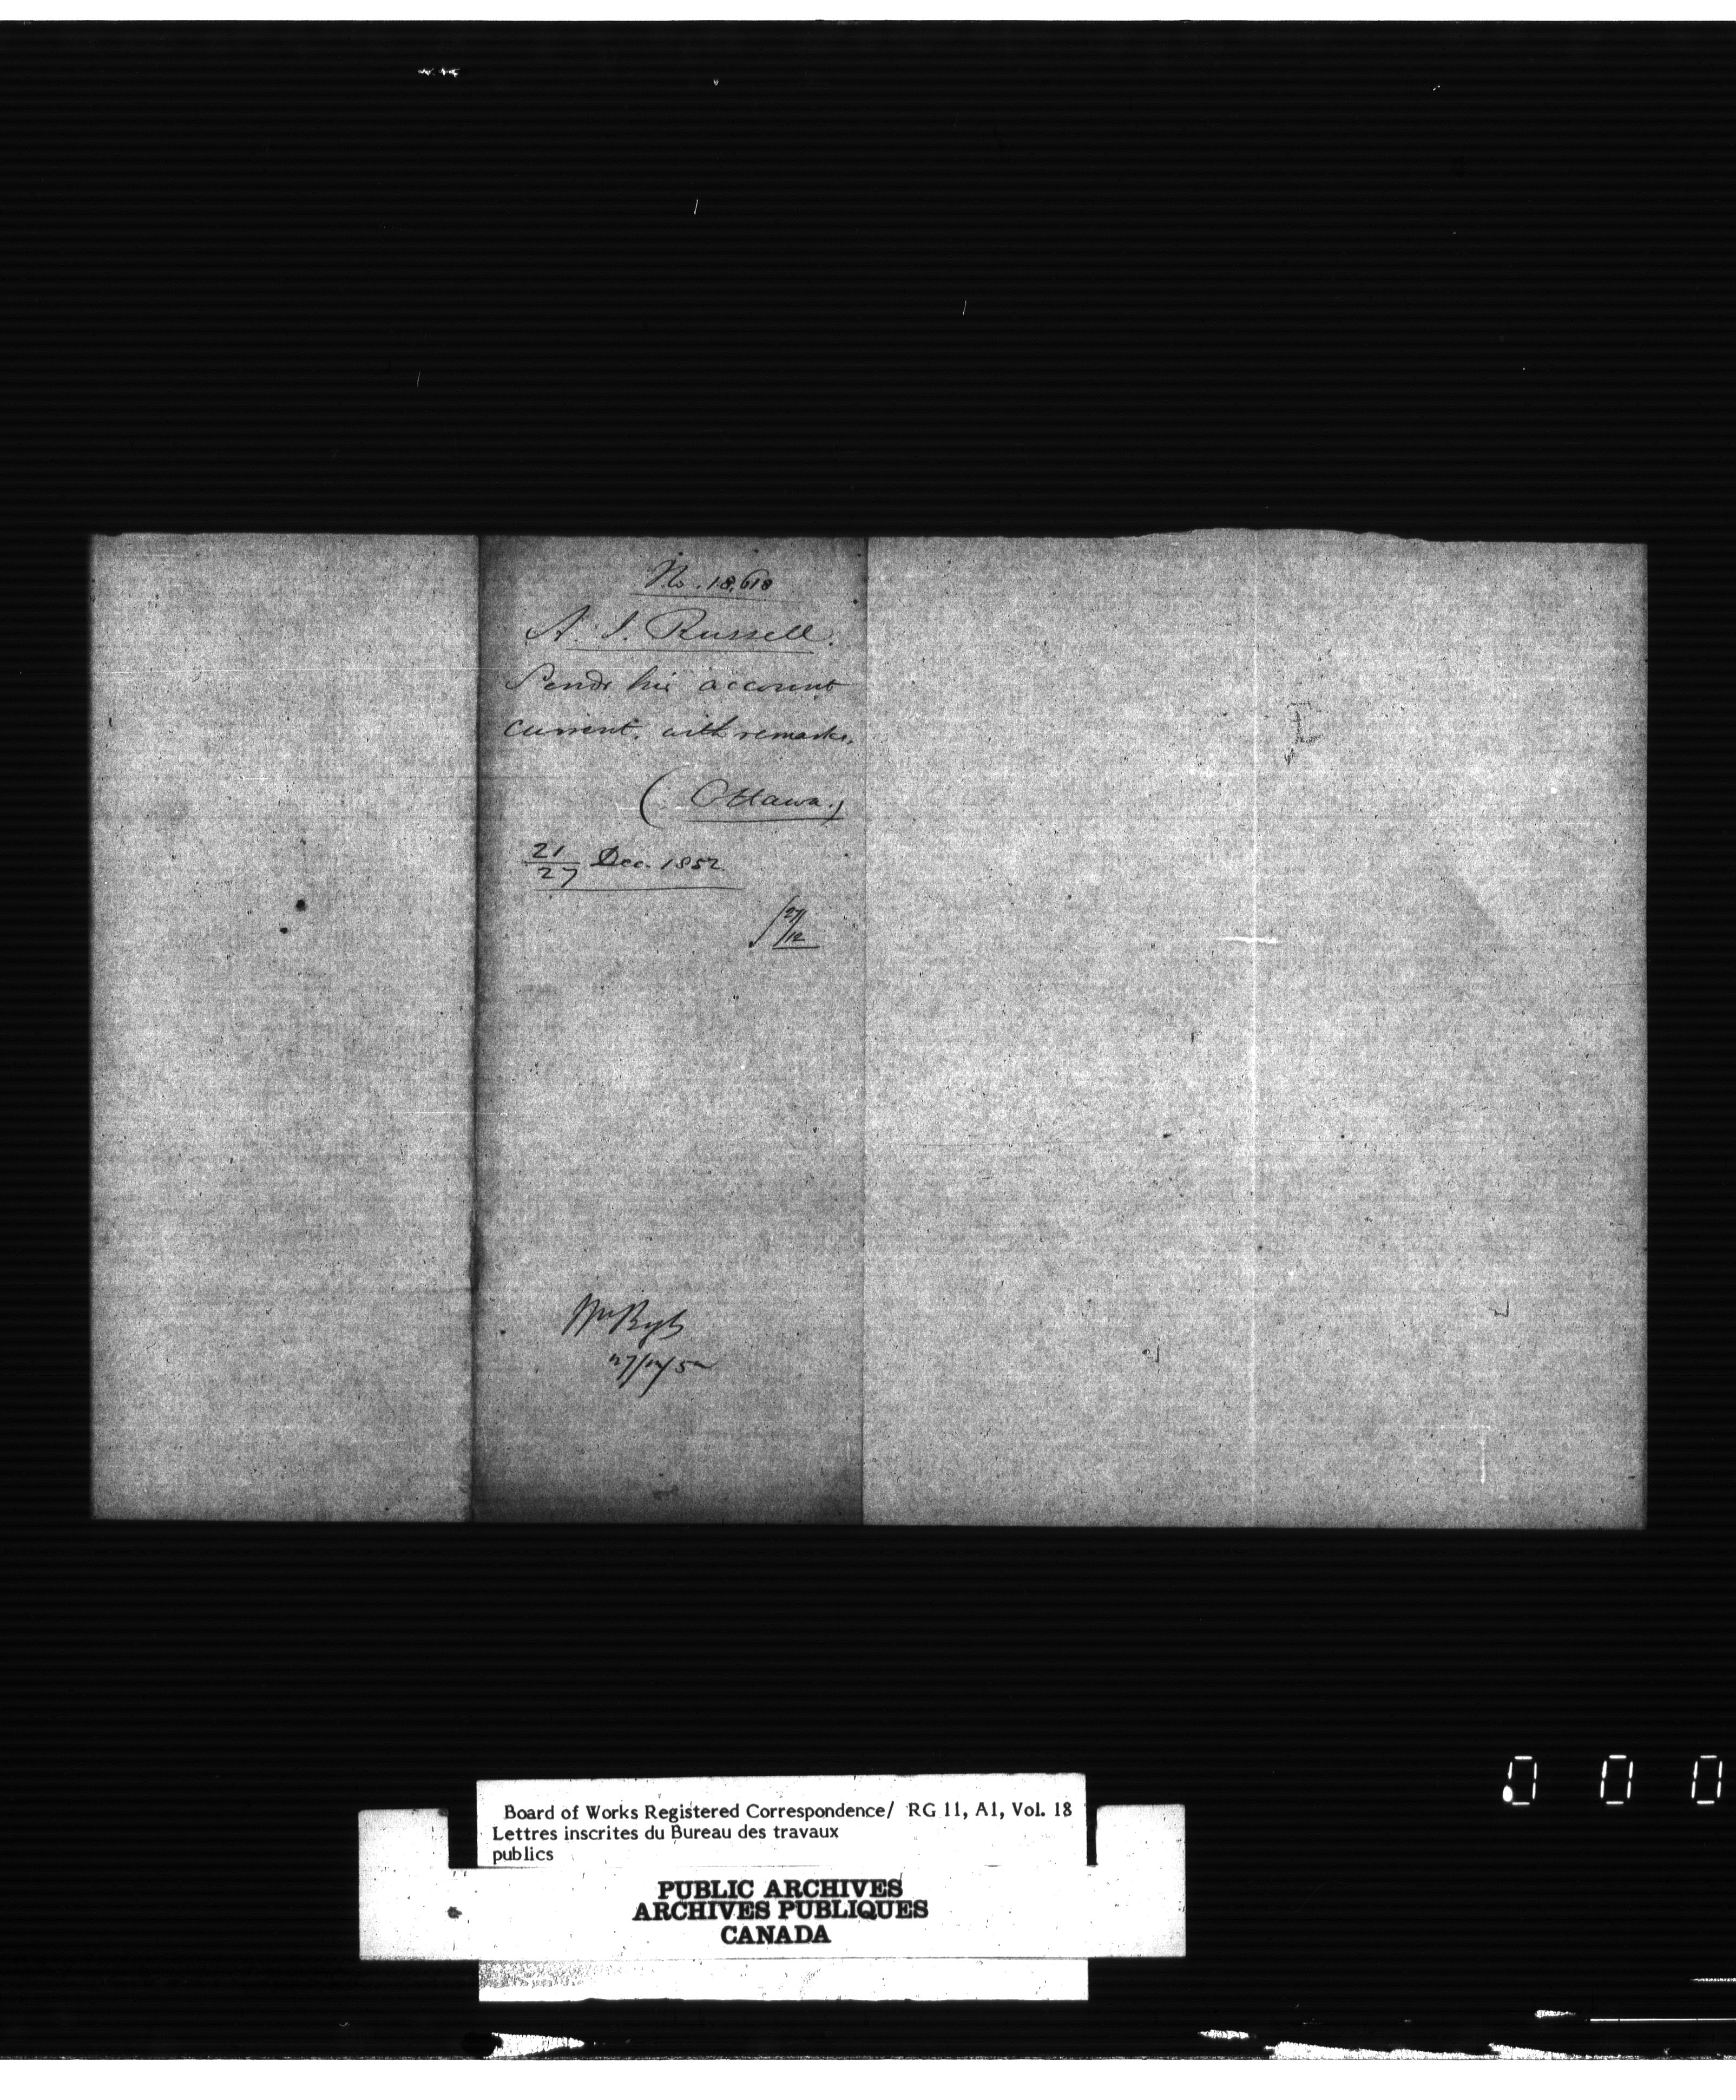 No. 18,618
A. J. Russell.
Sends his account
current, with remarks.
(Ottawa.)
21/27 Dec. 1852
27/12
27/12/52
Board of Works Registered Correspondence/ RG 11, A1, Vol. 18
Lettres inscrites du Bureau des travaux
publics
PUBLIC ARCHIVES
ARCHIVES PUBLIQUES
CANADA
0 0 0